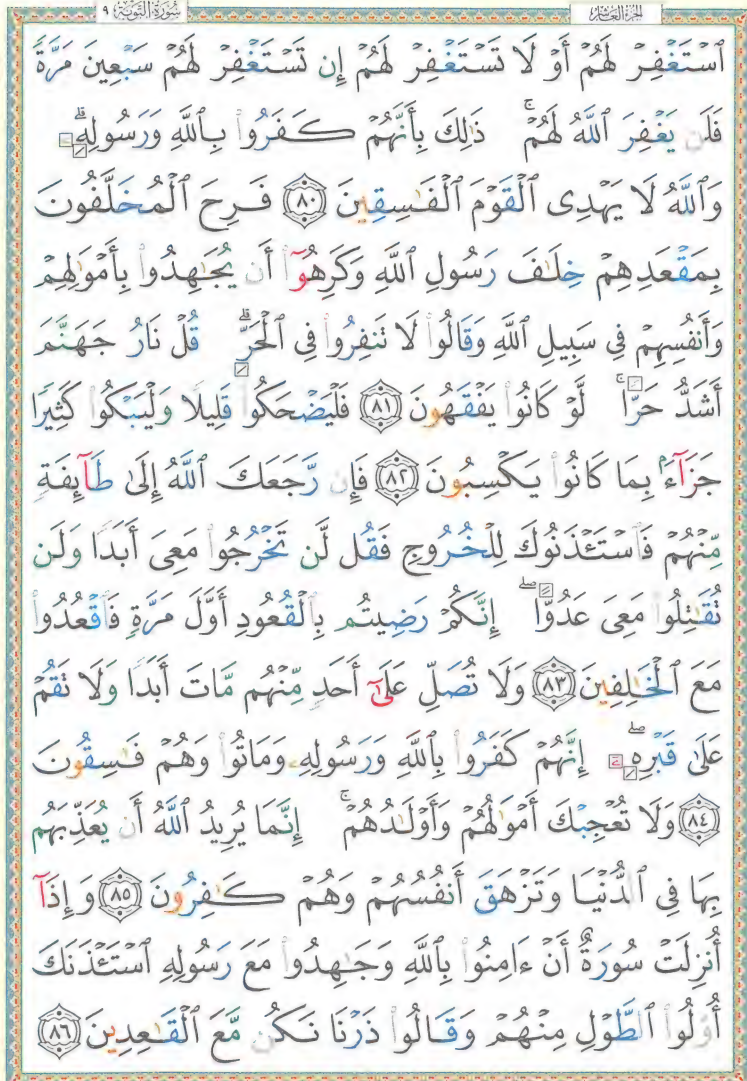 الجزء العاشر سورة التوبة ٩
ٱسْتَغْفِرْ لَهُمْ أَوْ لَا تَسْتَغْفِرْ لَهُمْ إِن تَسْتَغْفِرْ لَهُمْ سَبْعِينَ مَرَّةً
فَلَن يَغْفِرَ ٱللَّهُ لَهُمْ ۚ ذَٰلِكَ بِأَنَّهُمْ كَفَرُوا۟ بِٱللَّهِ وَرَسُولِهِۦ ۗ
وَٱللَّهُ لَا يَهْدِى ٱلْقَوْمَ ٱلْفَـٰسِقِينَ ﴿٨٠﴾ فَرِحَ ٱلْمُخَلَّفُونَ
بِمَقْعَدِهِمْ خِلَـٰفَ رَسُولِ ٱللَّهِ وَكَرِهُوٓا۟ أَن يُجَـٰهِدُوا۟ بِأَمْوَٰلِهِمْ
وَأَنفُسِهِمْ فِى سَبِيلِ ٱللَّهِ وَقَالُوا۟ لَا تَنفِرُوا۟ فِى ٱلْحَرِّ ۗ قُلْ نَارُ جَهَنَّمَ
أَشَدُّ حَرًّا ۚ لَّوْ كَانُوا۟ يَفْقَهُونَ ﴿٨١﴾ فَلْيَضْحَكُوا۟ قَلِيلًا وَلْيَبْكُوا۟ كَثِيرًا
جَزَآءًۢ بِمَا كَانُوا۟ يَكْسِبُونَ ﴿٨٢﴾ فَإِن رَّجَعَكَ ٱللَّهُ إِلَىٰ طَآئِفَةٍ
مِّنْهُمْ فَٱسْتَـْٔذَنُوكَ لِلْخُرُوجِ فَقُل لَّن تَخْرُجُوا۟ مَعِىَ أَبَدًا وَلَن
تُقَـٰتِلُوا۟ مَعِىَ عَدُوًّا ۖ إِنَّكُمْ رَضِيتُم بِٱلْقُعُودِ أَوَّلَ مَرَّةٍ فَٱقْعُدُوا۟
مَعَ ٱلْخَـٰلِفِينَ ﴿٨٣﴾ وَلَا تُصَلِّ عَلَىٰٓ أَحَدٍ مِّنْهُم مَّاتَ أَبَدًا وَلَا تَقُمْ
عَلَىٰ قَبْرِهِۦٓ ۖ إِنَّهُمْ كَفَرُوا۟ بِٱللَّهِ وَرَسُولِهِۦ وَمَاتُوا۟ وَهُمْ فَـٰسِقُونَ
﴿٨٤﴾ وَلَا تُعْجِبْكَ أَمْوَٰلُهُمْ وَأَوْلَـٰدُهُمْ ۚ إِنَّمَا يُرِيدُ ٱللَّهُ أَن يُعَذِّبَهُم
بِهَا فِى ٱلدُّنْيَا وَتَزْهَقَ أَنفُسُهُمْ وَهُمْ كَـٰفِرُونَ ﴿٨٥﴾ وَإِذَآ
أُنزِلَتْ سُورَةٌ أَنْ ءَامِنُوا۟ بِٱللَّهِ وَجَـٰهِدُوا۟ مَعَ رَسُولِهِ ٱسْتَـْٔذَنَكَ
أُو۟لُوا۟ ٱلطَّوْلِ مِنْهُمْ وَقَالُوا۟ ذَرْنَا نَكُن مَّعَ ٱلْقَـٰعِدِينَ ﴿٨٦﴾